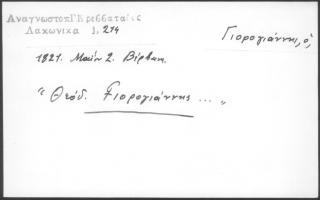 Αναγνωστοπ Γρεββαταίς
Λακωνικα 1, 214
Γιορογιάννης, ὁ,
1821. Μαΐῳ 2. Βίρβικ.
" Θεόδ. Γιορογιάννης ... "